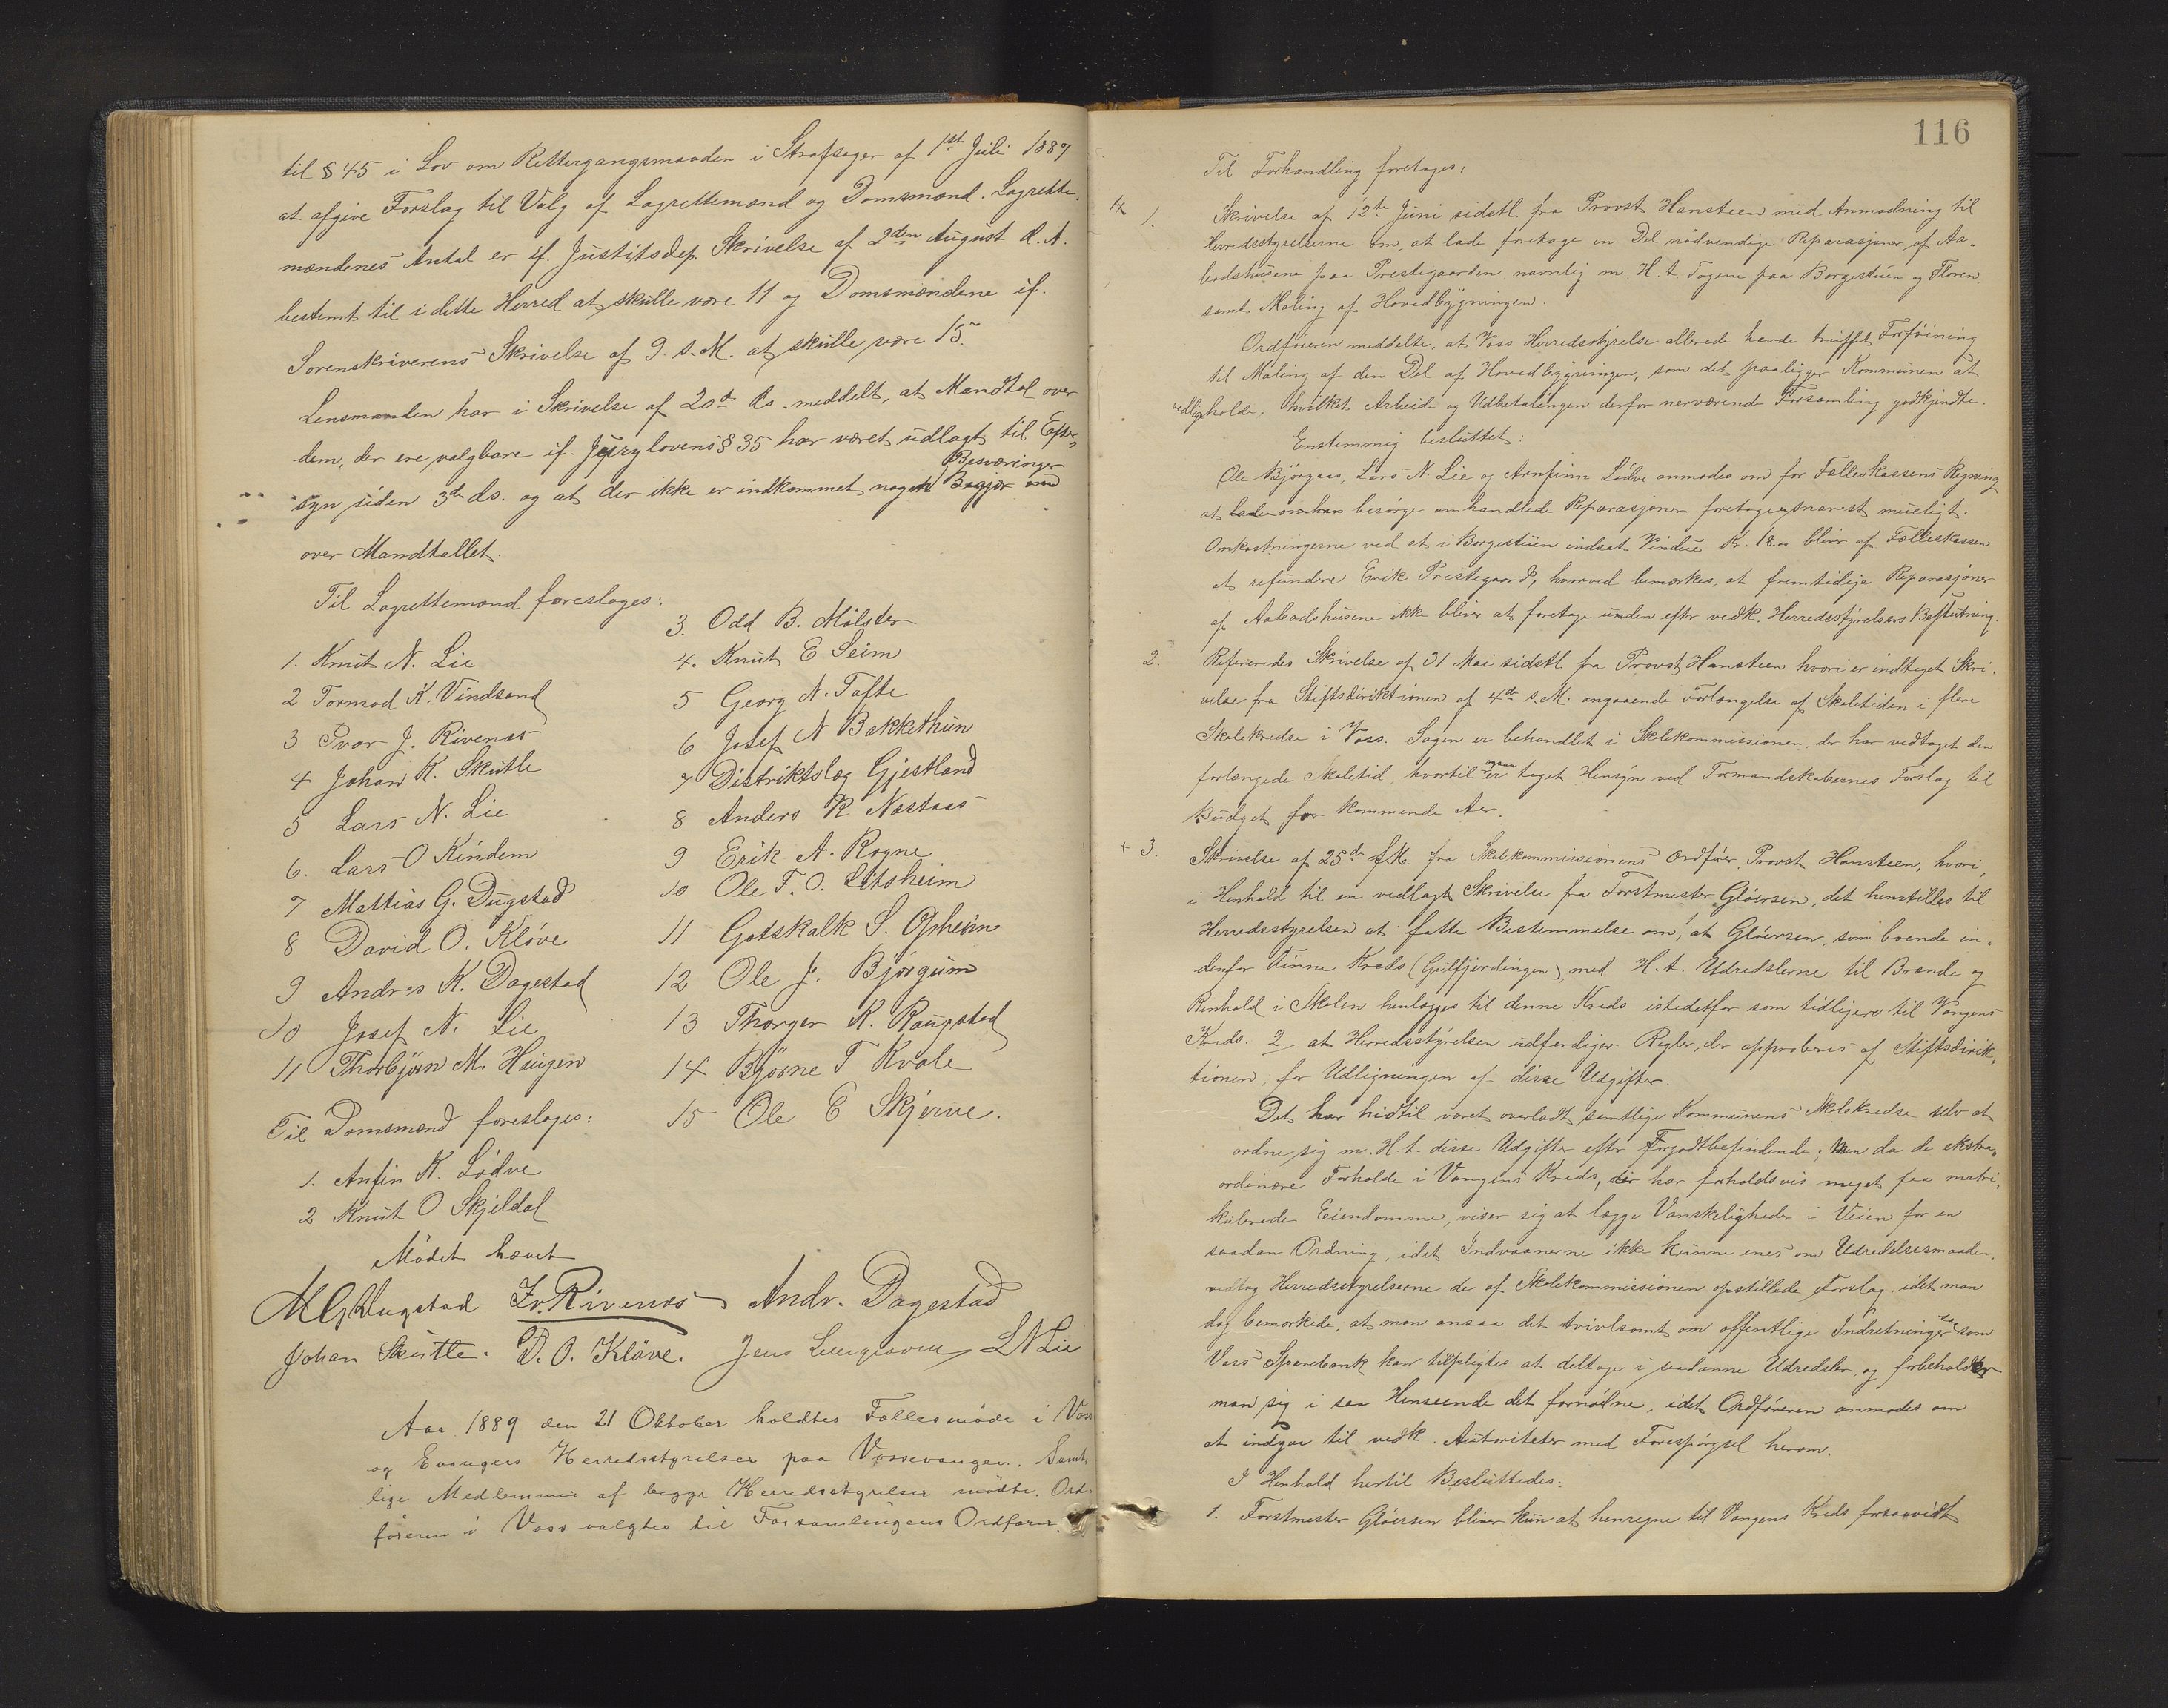 til § 45 i Lov om Rettergangsmaaden i Strafsager af 1st Juli 1887
at afgive Forslag til Valg af Lagrettemænd og Domsmænd. Lagrette-
mændenes Antal er if. Justitsdep. Skrivelse af 2den August d. A.
bestemt til i dette Herred at skulle være 11 og Domsmændene if.
Sorenskriverens Skrivelse af 9. s.M. at skulle være 15.
Lensmanden har i Skrivelse af 20de ds. meddelt, at Mandtal over
dem, der ere valgbare if. Jurylovens § 35 har været udlagt til Efter-
syn siden 3de ds. og at der ikke er indkommet nogen Besværinger Begjær om
over Mandtallet.
Til Lagrettemænd foreslages:
1. Knut N. Lie
2 Tormod K. Vindsand
3 Ivar J. Rivenæs
4 Johan K. Skutle
5 Lars N. Lie
6. Lars O Kindem
7 Mattias G. Dugstad
8 David O. Kløve
9 Andres K. Dagestad
10 Josef N. Lie
11 Thorbjørn M. Haugen
Til Domsmænd foreslages:
1. Anfin K. Lødve
2 Knut O Skjeldal
3. Odd B. Mølster
4. Knut E Seim
5 Georg N. Tafte
6 Josef N Bakkethun
7 Distriktslæg Gjestland
8 Anders R Næstaas
9 Erik A. Rogne
10 Ole T. O. Litsheim
11 Gotskalk S. Opheim
12 Ole J. Bjørgum
13 Thorger K. Raugstad
14 Bjørne T Kvale
15 Ole E Skjerve.
Mødet hævet
MGDugstad Iv. Rivenæs Andr. Dagestad
Johan Skutle. D. O. Kløve. Jens Lungraven LNLie
Aar 1889 den 21 Oktober holdtes Fællesmøde i Voss
og Evangers Herredsstyrelser paa Vossevangen. Samt-
lige Medlemmer af begge Herredsstyrelser mødte. Ord-
føreren i Voss valgtes til Forsamlingens Ordfører.
116
Til Forhandling foretages:
1. Skrivelse af 12te Juni sidstl. fra Provst Hansteen med Anmodning til
Herredsstyrelserne om, at lade foretage en Del nødvendige Reparasjoner af Aa-
bodshusene paa Prestegaarden navnlig m. H. t. Tagene paa Borgestuen og Floren
samt Maling af Hovedbygningen.
Ordføreren meddelte, at Voss Herredsstyrelse allerede havde truffet Forføining
til Maling af den Del af Hovedbygningen, som det paaligger Kommunen at
vedligeholde, hvilket Arbeide og Udbetalingen derfor nærværende Forsamling godkjendte.
Enstemmig besluttet:
Ole Bjørgaas, Lars N. Lie og Arnfinn Lødve anmodes om for Fælleskassens Regning
at besørge omhandlede Reparasjoner foretaget snarest mueligt.
Omkostningerne ved et i Borgestuen indsat Vindue Kr. 18.00 bliver af Fælleskassen
at refundere Erik Prestegaard, hvorved bemærkes, at fremtidige Reparasjoner
af Aabodshusene ikke bliver at foretage uden efter vedk. Herredsstyrelsers Beslutning.
2. Refereredes Skrivelse af 31 Mai sidstl. fra Provst Hansteen hvori er indtaget Skri-
velse fra Stiftsdirektionen af 4de s.M. angaaende Forlængelse af Skoletiden i flere
Skolekredse i Voss. Sagen er behandlet i Skolekommissionen, der har vedtaget den
forlængede Skoletid, hvortil ogsaa er taget Hensyn ved Formandskabernes Forslag til
Budget for kommende Aar.
+ 3. Skrivelse af 25de f.M. fra Skolekommissionens Ordfører Provst Hansteen, hvori,
i Henhold til en vedlagt Skrivelse fra Forstmester Gløersen, det henstilles til
Herredsstyrelsen at fatte Bestemmelse om, at Gløersen, som boende in-
denfor Finne Kreds (Gulfjerdingen) med H. t. Udredslerne til Brænde og
Renhold i Skolen henlægges til denne Kreds istedetfor som tidligere til Vangens
Kreds. 2. at Herredsstyrelsen udfærdiger Regler, der approberes af Stiftsdirek-
tionen, for Udligningen af disse Udgifter.
Det har hidtil været overladt samtlige Kommunens Skolekredse selv at
ordne sig m. H. t. disse Udgifter efter Forgodtbefindende; Men da de ekstra-
ordinære Forholde i Vangens Kreds, der har forholdsvis meget faa matri-
kulerede Eiendomme, viser sig at lægge Vanskeligheder i Veien for en
saadan Ordning, idet Indvaanerne ikke kunne enes om Udredelsesmaaden,
vedtog Herredsstyrelserne de af Skolekommissionen opstillede Forslag, idet man
dog bemærkede, at man ansaa det tvivlsomt om offentlige Indretninger som
Voss Sparebank kan tilpligtes at deltage i saadanne Udredsler, og forbeholder
man sig i saa Henseende det fornødne, idet Ordføreren anmodes om
at indgaa til vedk. Autoriteter med Forespørgsel herom.
I Henhold hertil Besluttedes:
1. Forstmester Gløersen bliver kun at henregne til Vangens Kreds forsaavidt